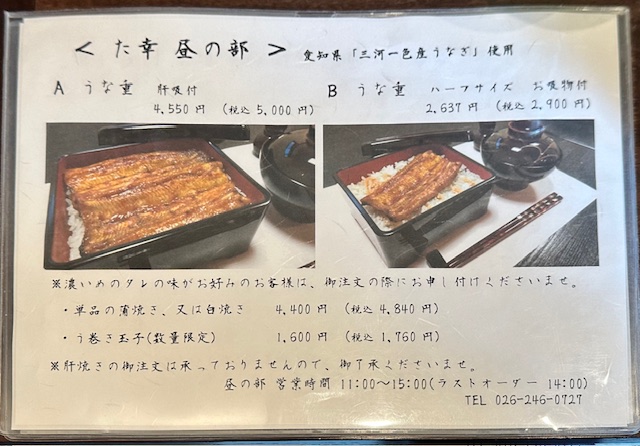 ＜ た幸 昼の部 ＞ 愛知県「三河一色産うなぎ」使用
A うな重 肝吸付
4,550 円 (税込 5,000円)
B うな重 ハーフサイズ お吸物付
2,637 円 (税込 2,900円)
※濃いめのタレの味がお好みのお客様は、御注文の際にお申し付けくださいませ。
・単品の蒲焼き、又は白焼き 4,400 円 (税込 4,840 円)
・う巻き玉子(数量限定) 1,600 円 (税込 1,760 円)
※肝焼きの御注文は承っておりませんので、御了承くださいませ。
昼の部 営業時間 11:00〜15:00(ラストオーダー 14:00)
TEL 026-246-0727